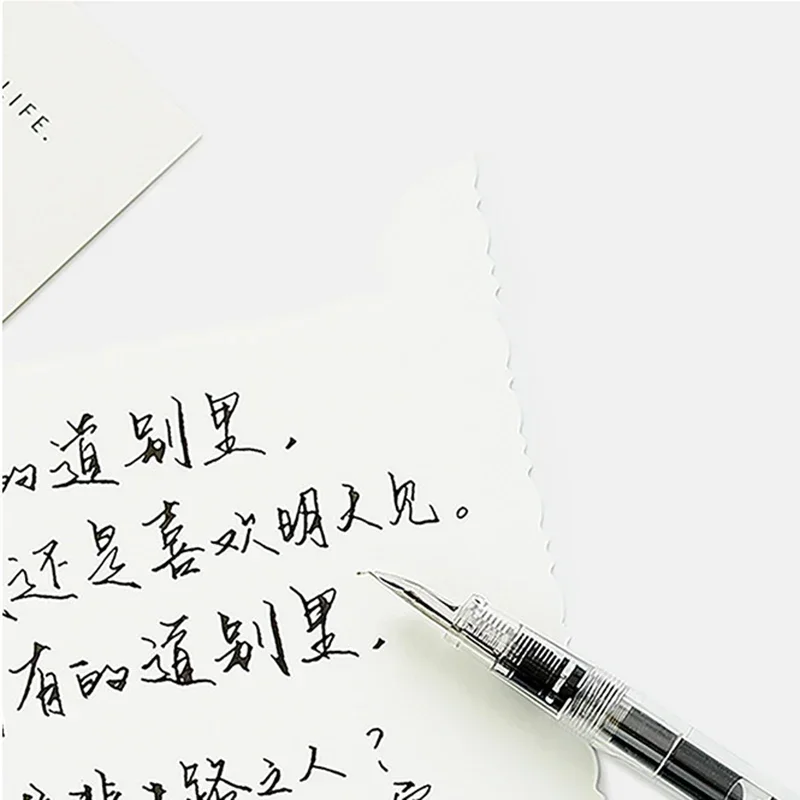 LIFE.
的道别里，
还是喜欢明天见。
有的道别里，
路之人？